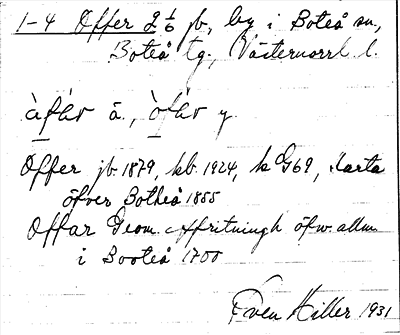 1-4 Offer 2 1/6 jb, by i Boteå sn,
Boteå tg., Västernorrl. l.
àfàr ä., òfàr y.
Offer jb. 1879, kb. 1924, k G69, Karta
öfver Botheå 1855
Offar Geom. affritningh öfw. allm
i Booteå 1700
Even Hiller 1931